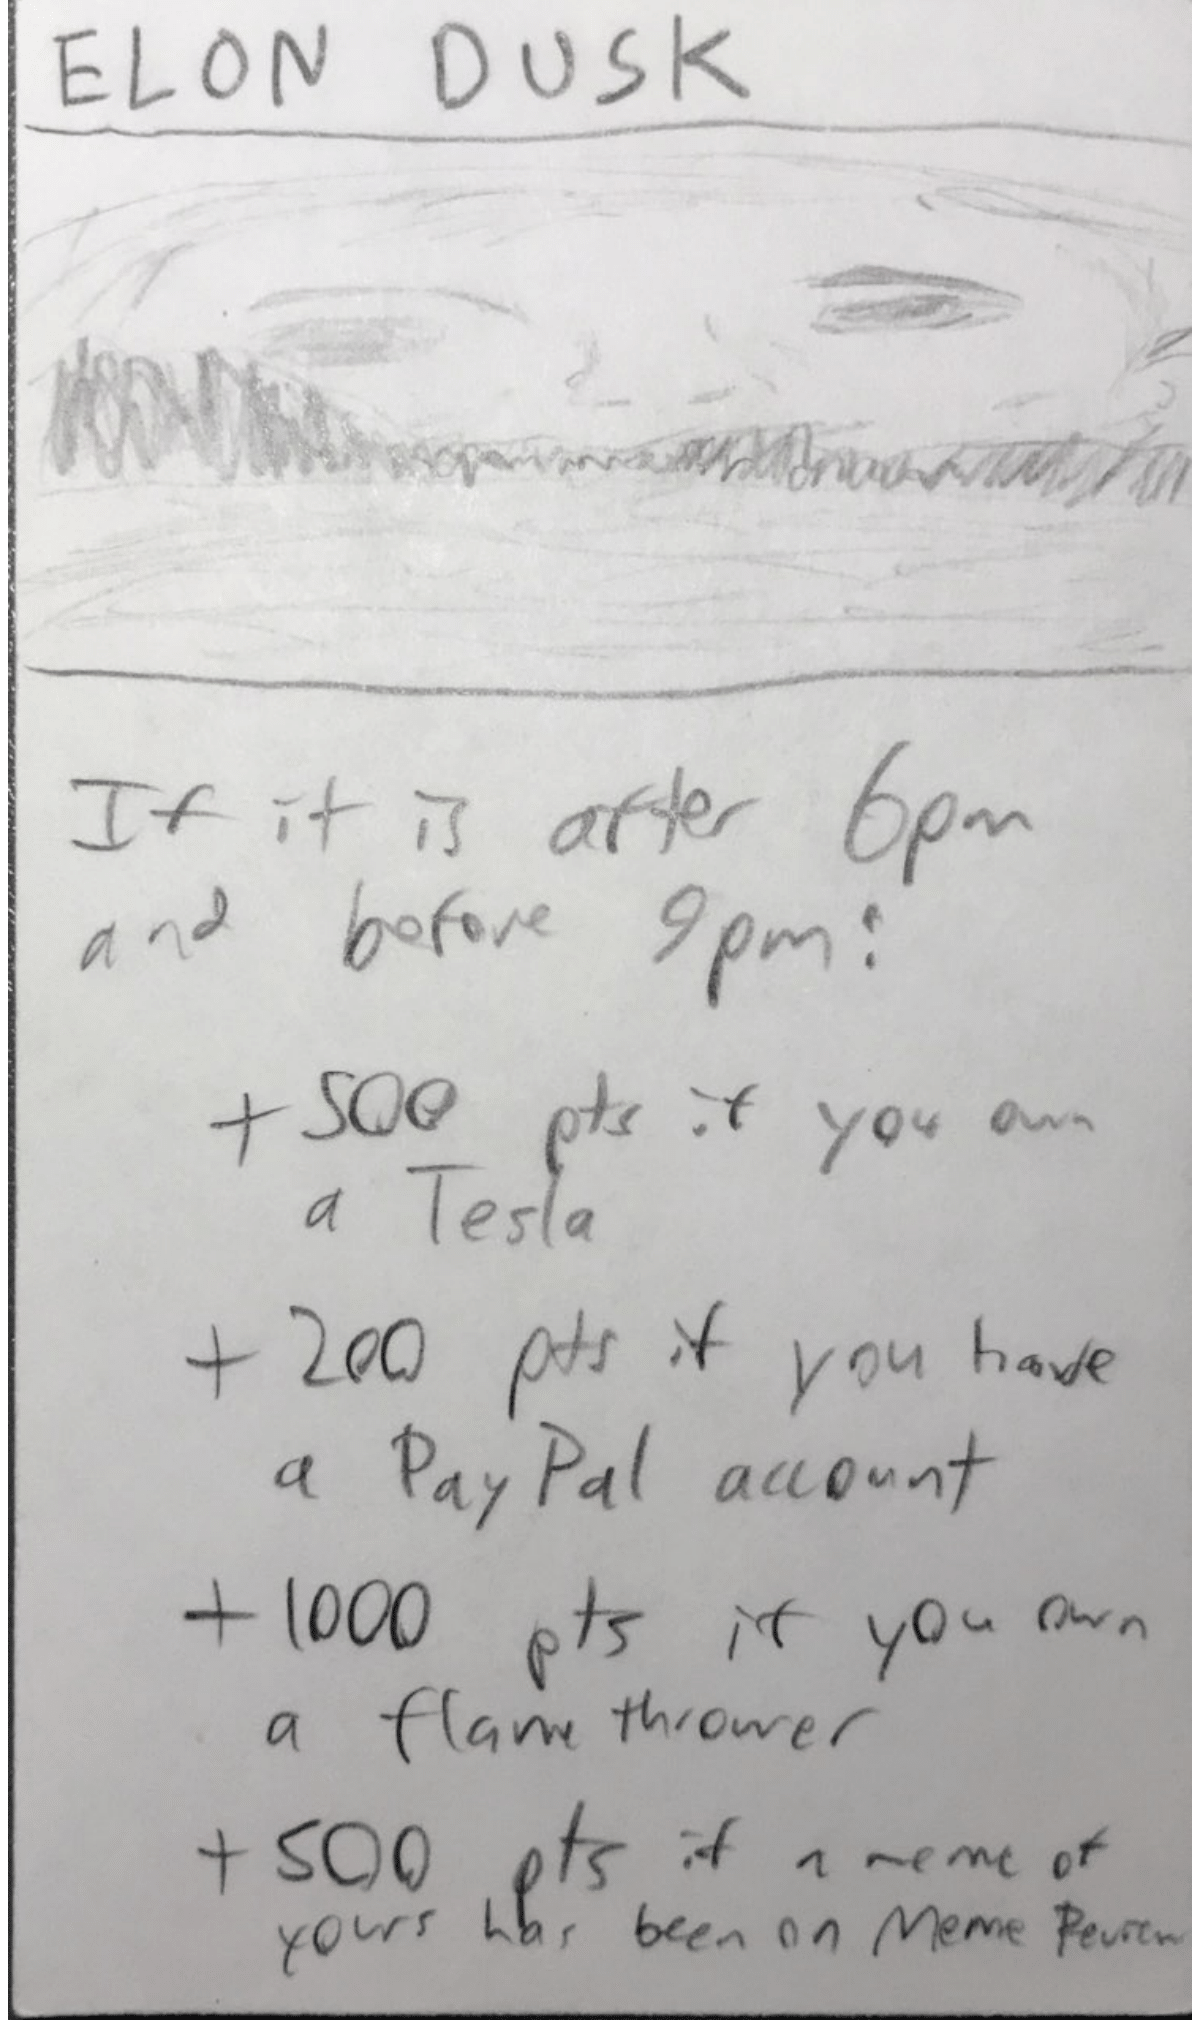 ELON DUSK
If it is after 6pm
and before 9pm:
+500 pts if you own
a Tesla
+200 pts if you have
a PayPal account
+1000 pts if you own
a flame thrower
+500 pts if a meme of
yours has been on Meme Review